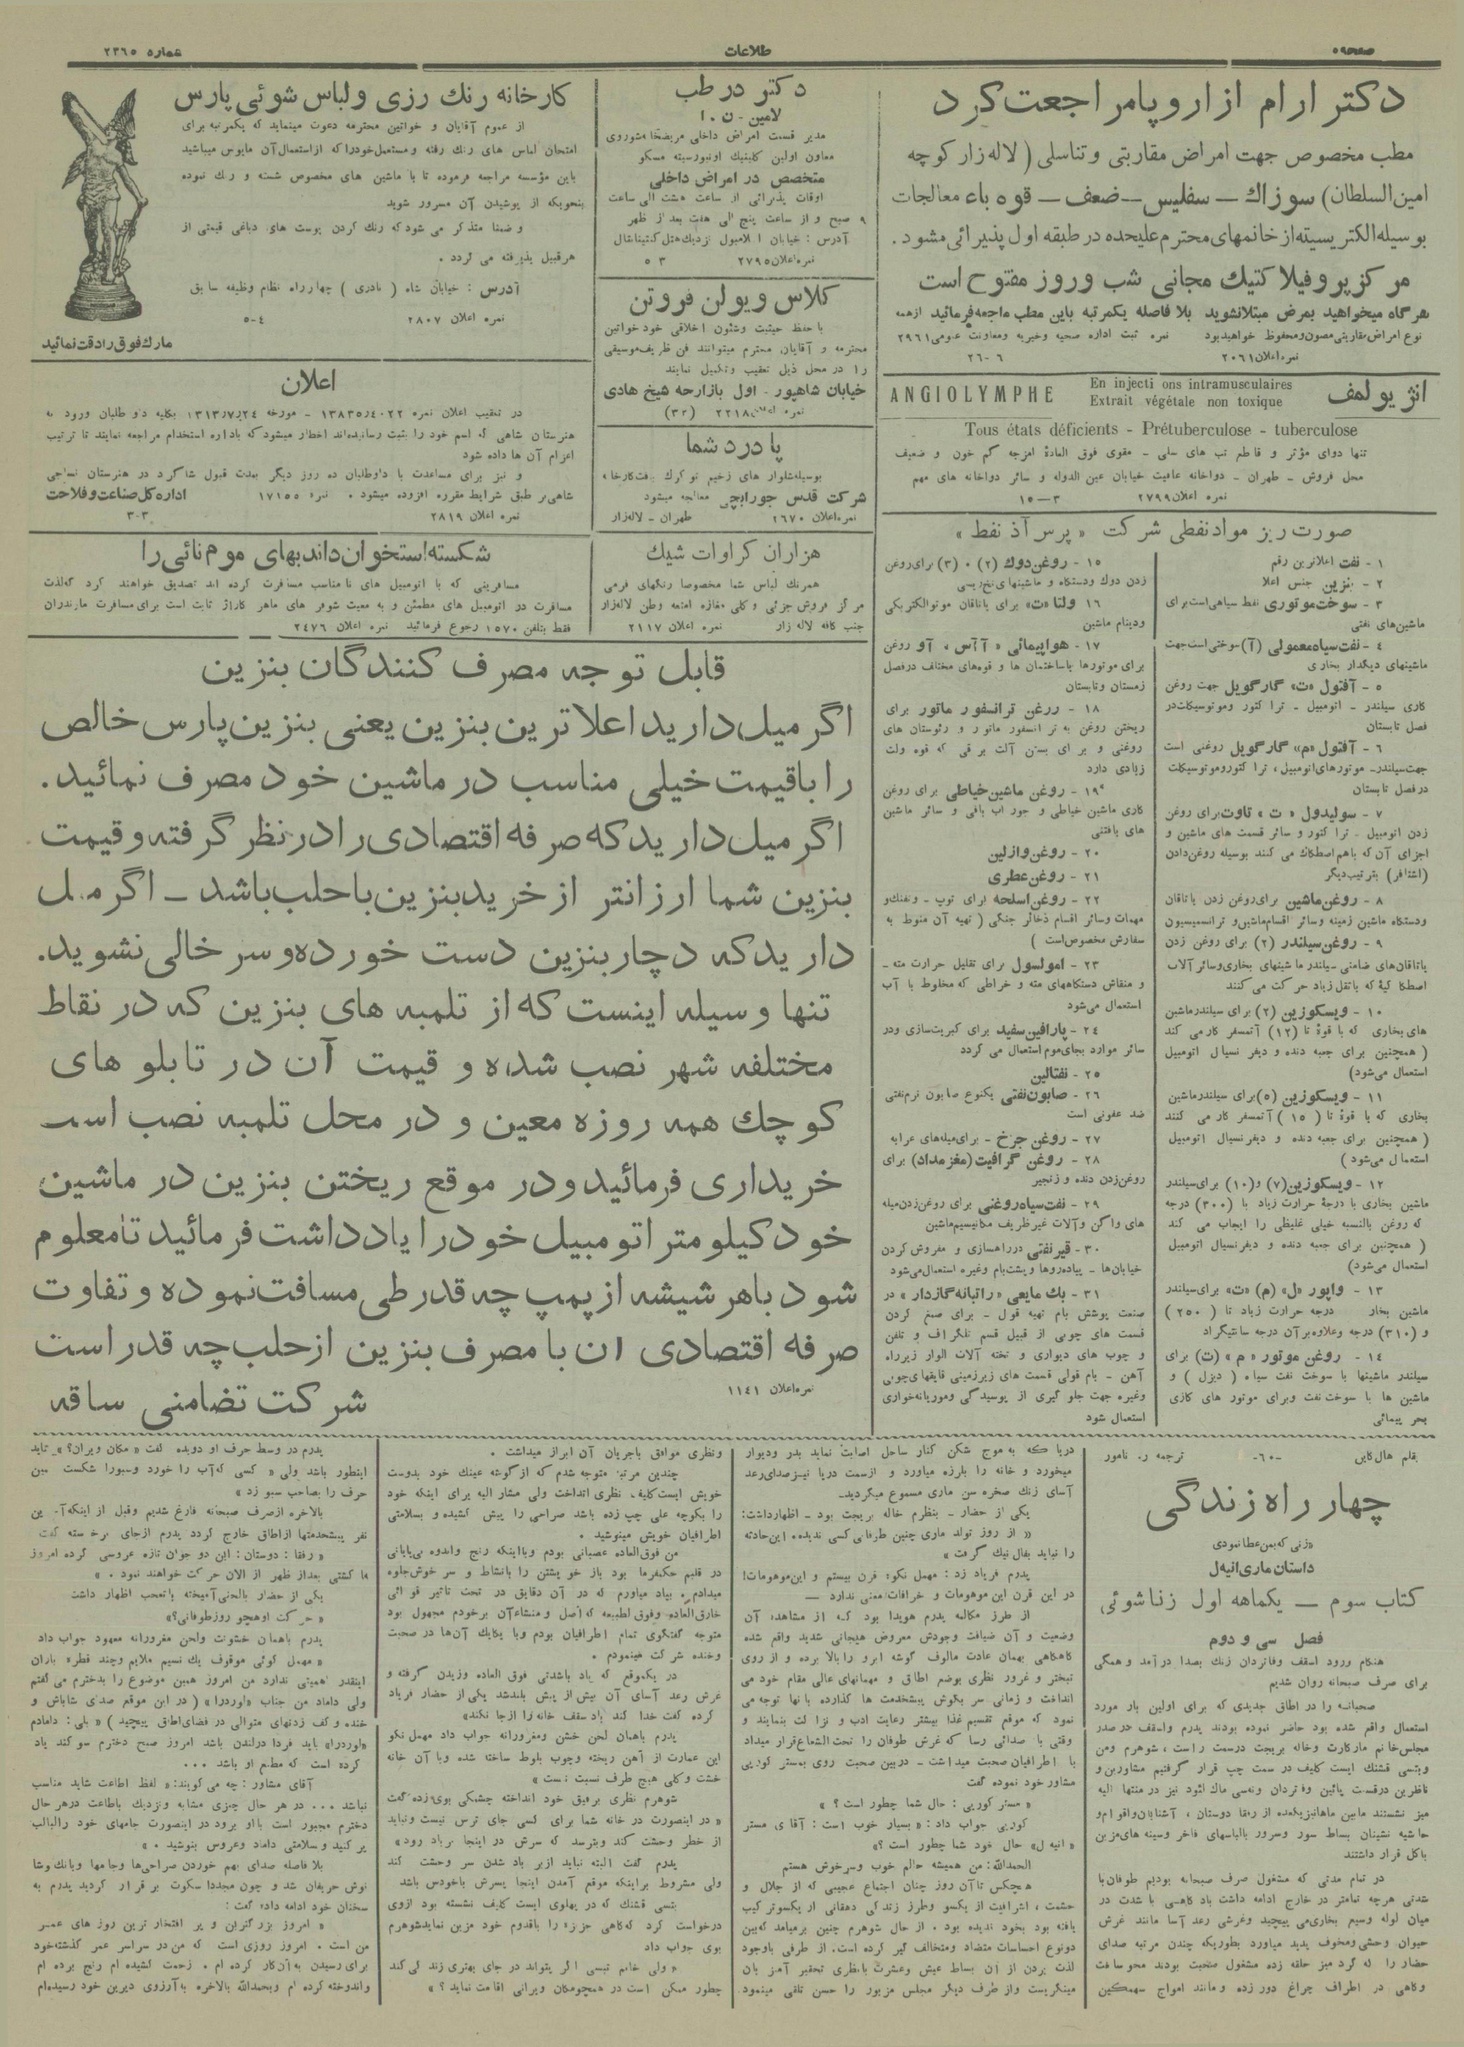 صفحه ۵
طلاعات
شماره ۲۳۶۵
دکتر ارام از اروپا مراجعت کرد
مطب مخصوص جهت امراض مقاربتی و تناسلی ( لاله زار کوچه
امین السلطان) سوزاك – سفلیس – ضعف – قوه باء معالجات
بوسیله الکتریسیته از خانمهای محترم علیحده در طبقه اول پذیرائی مشود.
مرکز پروفیلا کتیك مجانی شب و روز مفتوح است
هر گاه میخواهید بمرض مبتلا نشوید بلا فاصله یکمرتبه باین مطب ماجعه فرمائید از همه
نوع امراض مقاربتی مصون و محفوظ خواهید بود نمره ثبت اداره صحیه و خیریه و معاونت عمومی ۲۹۶۱
نمره اعلان ۲۰۶۱ ۶ -۲۶
انژیو لمف
ANGIOLYMPHE
En injecti ons intramusculaires
Extrait végétale non toxique
Tous états déficients - Prétuberculose - tuberculose
تنها دوای مؤثر و قاطع تب های سلی - مقوی فوق العادهٔ امزجه کم خون و ضعیف
محل فروش - طهران - دواخانه عافیت خیابان عین الدوله و سائر دواخانه های مهم
نمره اعلان ۲۷۹۹ ۳ — ۱۵
صورت ریز مواد نفطی شرکت « پرس آذ نفط »
۱ - نفت اعلا ترین رقم
۲ - بنزین جنس اعلا
۳ - سوخت موتوری نفط سیاهی است برای
ماشین های نفتی
۴ - نفت سیاه معمولی (آ) سوختی است جهت
ماشینهای دیگدار بخاری
۵ - آفتول «ت» گارگویل جهت روغن
کاری سیلندر - اتومبیل - ترا کتور و موتوسیکلت در
فصل تابستان
۶ - آفتول «م» گارگویل روغنی است
جهت سیلندر - موتورهای اتومبیل ، ترا کتور و موتوسیکلت
در فصل تابستان
۷ - سولیدول « ت » تاوت برای روغن
زدن اتومبیل - ترا کتور و سائر قسمت های ماشین و
اجزای آن که با هم اصطکاك می کنند بوسیله روغن دادن
بترتیب دیگر
۸ - روغن ماشین برای روغن زدن یاتاقان
و دستگاه ماشین زمینه و سائر اقسام ماشین و ترانسمیسیون
۹ - روغن سیلندر (۲) برای روغن زدن
یاتاقان های ضامنی سیلندر ماشینهای بخاری و سائر آلات
اصطکا کیهٔ که با ثقل زیاد حرکت می کنند
۱۰ - ویسکوزین (۲) برای سیلندر ماشین
های بخاری که با قوهٔ تا (۱۲) آتمسفر کار می کند
( همچنین برای جعبه دنده و دیفر نسیال اتومبیل
استعمال می شود)
۱۱ - ویسکوزین (۵) برای سیلندر ماشین
بخاری که با قوهٔ تا ( ۱۵ ) آتمسفر کار می کنند
( همچنین برای جعبه دنده و دیفر نسیال اتومبیل
استعمال می شود )
۱۲ - ویسکوزین (۷) و (۱۰) برای سیلندر
ماشین بخاری با درجهٔ حرارت زیاد با (۳۰۰) درجه
که روغن بالنسبه خیلی غلیظی را ایجاب می کند
( همچنین برای جعبه دنده و دیفر نسیال اتومبیل
استعمال می شود)
۱۳ - واپور «ل» (م) «ت» برای سیلندر
ماشین بخار درجه حرارت زیاد تا ( ۲۵۰ )
و (۳۱۰) درجه و علاوه بر آن درجه سانتیگراد
۱۴ - روغن موتور « م » (ت) برای
سیلندر ماشینها با سوخت نفت سیاه ( دیزل ) و
ماشین ها با سوخت نفت و برای موتور های کازی
بحر پیمائی
۱۵ - روغن دوك (۲) ، (۳) برای روغن
زدن دوك و دستگاه و ماشینهای نخ ریسی
۱۶ ولتا «ت» برای یاتاقان موتو الکتریکی
و دینام ماشین
۱۷ - هواپیمائی « آ آس ، آو روغن
برای موتورها با ساختمان ها و قوه های مختلف در فصل
زمستان و تابستان
۱۸ - روغن ترانسفور ماتور برای
ریختن روغن به ترانسفور ماتور و رئوستان های
روغنی و برای بستن آلت برقی که قوه ولت
زیادی دارد
۱۹ - روغن ماشین خیاطی برای روغن
کاری ماشین خیاطی و جوراب بافی و سائر ماشین
های بافتنی
۲۰ - روغن وازلین
۲۱ - روغن عطری
۲۲ - روغن اسلحه برای توپ - و تفنك و
مهمات و سائر اقسام ذخائر جنگی ( تهیه آن منوط به
سفارش مخصوص است )
۲۳ - امولسول برای تقلیل حرارت مته -
و منقاش دستگاههای مته و خراطی که مخلوط با آب
استعمال می شود
۲۴ - پارافین سفید برای کبریت سازی و در
سائر موارد بجای موم استعمال می گردد
۲۵ - نفتالین
۲۶ - صابون نفتی یکنوع صابون نرم نفتی
ضد عفونی است
۲۷ - روغن چرخ - برای میله های عرابه
۲۸ - روغن گرافیت (مغز مداد) برای
روغن زدن دنده و زنجیر
۲۹ - نفت سیاه روغنی برای روغن زدن میله
های واگن و آلات غیر ظریف مکانیسیم ماشین
۳۰ - قیر نفتی در راهسازی و مفروش کردن
خیابان ها - پیاده روها و پشت بام و غیره استعمال می شود
۳۱ - پك مایعی « راتبانه گاز دار » در
صنعت پوشش بام تهیه قول - برای صمغ کردن
قسمت های چوبی از قبیل قسم تلگراف و تلفن
و چوب های دیواری و تخته آلات الوار زیر راه
آهن - بام قولی قسمت های زیر زمینی قایقهای چوبی
و غیره جهت جلو گیری از پوسیدگی و موریانه خواری
استعمال شود
دکتر در طب
لامین - ن . ا
مدیر قسمت امراض داخلی مریضخانه شوروی
معاون اولین کلینیك اونیورسیته مسکو
متخصص در امراض داخلی
اوقات پذیرائی از ساعت هشت الی ساعت
۹ صبح و از ساعت پنج الی هفت بعد از ظهر
آدرس : خیابان اسلامبول نزدیك هتل کنتینانتال
نمره اعلان ۲۷۹۵ ۳ ۵
کلاس ویولن فروتن
با حفظ حیثیت و شئون اخلاقی خود خواتین
محترمه و آقایان محترم میتوانند فن ظریف موسیقی
را در محل ذیل تعقیب و تکمیل نمایند
خیابان شاهپور - اول بازارحه شیخ هادی
نمره اعلان ۲۲۱۸ (۳۲)
پا درد شما
بوسیله شلوار های زخیم نو کرك بافت کارخانه
شرکت قدس جورابچی معالجه میشود
نمره اعلان ۲۶۷۰ طهران - لاله زار
هزاران کراوات شیك
همرنك لباس شما مخصوصا رنگهای فرمی
مرکز فروش جزئی و کلی مغازه امتعه وطن لاله زار
جنب کافه لاله زار نمره اعلان ۲۱۱۷
کارخانه رنك رزی و لباس شوئی پارس
از عموم آقایان و خواتین محترمه دعوت مینماید که یکمرتبه برای
امتحان لباس های رنك رفته و مستعمل خود را که از استعمال آن مایوس میباشید
باین مؤسسه مراجعه فرموده تا با ماشین های مخصوص شسته و رنك نموده
بنحویکه از پوشیدن آن مسرور شوید
و ضمنا متذکر می شود که رنك کردن پوست های دباغی قیمتی از
هر قبیل پذیرفته می گردد .
آدرس : خیابان شاه ( نادری ) چهار راه نظام وظیفه سابق
نمره اعلان ۲۸۰۷ ۴-۵
مارك فوق را دقت نمائید
اعلان
در تعقیب اعلان نمره ۱۳۸۳۵٫۴۰۲۲ - مورخه ۱۳۱۳٫۷٫۲۴ بکلیه داوطلبان ورود به
هنرستان شاهی که اسم خود را بثبت رسانیده اند اخطار میشود که باداره استخدام مراجعه نمایند تا ترتیب
اعزام آن ها داده شود
و نیز برای مساعدت با داوطلبان ده روز دیگر بمدت قبول شاگرد در هنرستان نساجی
شاهی بر طبق شرایط مقرره افزوده میشود . نمره ۱۷۱۵۵ اداره کل صناعت و فلاحت
نمره اعلان ۲۸۱۹ ۳-۳
شکسته استخوان داند بهای موم نائی را
مسافرینی که با اتومبیل های نامناسب مسافرت کرده اند تصدیق خواهند کرد که لذت
مسافرت در اتومبیل های مطمئن و به معیت شوفر های ماهر کاراژ ثابت است برای مسافرت مازندران
فقط بتلفن ۱۵۷۰ رجوع فرمائید نمره اعلان ۲۴۷۶
قابل توجه مصرف کنندگان بنزین
اگر میل دارید اعلا ترین بنزین یعنی بنزین پارس خالص
را با قیمت خیلی مناسب در ماشین خود مصرف نمائید.
اگر میل دارید که صرفه اقتصادی را در نظر گرفته و قیمت
بنزین شما ارزانتر از خرید بنزین با حلب باشد – اگر میل
دارید که دچار بنزین دست خورده و سر خالی نشوید.
تنها وسیله اینست که از تلمبه های بنزین که در نقاط
مختلفه شهر نصب شده و قیمت آن در تابلو های
کوچك همه روزه معین و در محل تلمبه نصب است
خریداری فرمائید و در موقع ریختن بنزین در ماشین
خود کیلومتر اتومبیل خود را یادداشت فرمائید تا معلوم
شود با هر شیشه از پمپ چه قدر طی مسافت نموده و تفاوت
صرفه اقتصادی ان با مصرف بنزین از حلب چه قدر است
نمره اعلان ۱۱۴۱
شرکت تضامنی ساقه
بقلم هال کاین -۶۰- ترجمه ر. نامور
چهار راه زندگی
«زنی که بمن عطا نمودی
داستان ماری انیه ل
کتاب سوم — یکماهه اول زناشوئی
فصل سی و دوم
هنگام ورود اسقف وفاتردان زنك بصدا در آمد و همگی
برای صرف صبحانه روان شدیم
صبحانه را در اطاق جدیدی که برای اولین بار مورد
استعمال واقع شده بود حاضر نموده بودند پدرم و اسقف در صدر
مجلس خانم مارگارت و خاله بریجت درست راست ، شوهرم و من
و بتسی قشنك ایست کلیف در سمت چپ قرار گرفتیم مشاورین و
ناظرین درقست پائین وفتردان و نه سی ماك لئود نیز در منتها الیه
میز نشستند مابین ماها نیز یکعده از رفقا دوستان ، آشنایان و اقوام و
حاشیه نشینان بساط سور و سرور با لباسهای فاخر و سینه های مزین
با گل قرار داشتند
در تمام مدتی که مشغول صرف صبحانه بودیم طوفان با
شدتی هر چه تمامتر در خارج ادامه داشت باد گاهی با شدت در
میان لوله وسیع بخاری می پیچید و غرشی رعد آسا مانند غرش
حیوان وحشی و مخوف پدید میاورد بطوریکه چندین مرتبه صدای
حضار را که گرد میز حلقه زده مشغول صحبت بودند محو ساخت
و گاهی در اطراف چراغ دور زده و مانند امواج سهمگین
دریا که به موج شکن کنار ساحل اصابت نماید بدر و دیوار
میخورد و خانه را بلرزه میاورد و از سمت دریا نیز صدای رعد
آسای زنك صخره سن ماری مسموع میگردید.
یکی از حضار - بنظرم خاله بریجت بود - اظهار داشت:
« از روز تولد ماری چنین طوفانی کسی ندیده این حادثه
را نباید بفال نیك گرفت »
پدرم فریاد زد : مهمل نگو: قرن بیستم و این موهومات!
در این قرن این موهومات و خرافات معنی ندارد —
از طرز مکالمه پدرم هویدا بود که از مشاهده آن
وضعیت و آن ضیافت وجودش معروض هیجانی شدید واقع شده
گاهگاهی بهمان عادت مالوف گوشه ابرو را بالا برده و از روی
تبختر و غرور نظری بوضع اطاق و مهمانهای عالی مقام خود می
انداخت و زمانی سر بگوش پیشخدمت ها گذارده با نها توجه می
نمود که موقع تقسیم غذا بیشتر رعایت ادب و نزاکت بنمایند و
وقتی با صدائی رسا که غرش طوفان را تحت الشعاع قرار میداد
با اطرافیان صحبت میداشت - در بین صحبت روی بمستر کوریی
مشاور خود نموده گفت
« مستر کوریی : حال شما چطور است ؟ »
کوریی جواب داد : « بسیار خوب است : آقای مستر
« انیه ل» حال خود شما چطور است ؟»
الحمدالله: من همیشه حالم خوب و سرخوش هستم
هیچکس تا آن روز چنان اجتماع عجیبی که از جلال و
حشمت ، اشرافیت از یکسو و طرز زندگی دهقانی از یکسو ترکیب
یافته بود بخود ندیده بود . از حال شوهرم چنین بر میامد که بین
دو نوع احساسات متضاد و متخالف گیر کرده است. از طرفی با وجود
لذت بردن از آن بساط عیش و عشرت با نظری تحقیر آمیز بان
مینگریست و از طرف دیگر مجلس مزبور را حسن تلقی مینمود
و نظری موافق با جریان آن ابراز میداشت .
چندین مرتبه متوجه شدم که از گوشه عینك خود بدوست
خویش ایست کلیف نظری انداخت ولی مشار الیه برای اینکه خود
را بکوچه علی چپ زده باشد صراحی را پیش کشیده و بسلامتی
اطرافیان خویش مینوشید .
من فوق العاده عصبانی بودم و با اینکه رنج و اندوه بی پایانی
در قلبم حکمفرما بود باز خویشتن را با نشاط و سر خوش جلوه
میدادم . بیاد میاورم که در آن دقایق در تحت تاثیر قوائی
خارق العاده و فوق الطبیعه که اصل و منشاء آن بر خودم مجهول بود
متوجه گفتگوی تمام اطرافیان بودم و با یکایك آن ها در صحبت
و خنده شرکت مینمودم .
در یکموقع که باد با شدتی فوق العاده وزیدن گرفته و
غرش رعد آسای آن بیش از پیش بلند شد یکی از حضار فریاد
کرده گفت خدا کند باد سقف خانه را از جا نکند»
پدرم باهمان لحن خشن و مغرورانه جواب داد مهمل نگو
این عمارت از آهن ریخته و چوب بلوط ساخته شده و با آن خانه
خشت و گلی هیچ طرف نسبت نیست »
شوهرم نظری برفیق خود انداخته چشمکی بوی زده گفت
« در اینصورت در خانه شما برای کسی جای ترس نیست و نباید
از خطر وحشت کند و بترسد که سرش در اینجا بر باد رود»
پدرم گفت البته نباید از بر باد شدن سر وحشت کند
ولی مشروط بر اینکه موقع آمدن اینجا بسرش با خودش باشد
بتسی قشنك که در پهلوی ایست کلیف نشسته بود از وی
درخواست کرد که گاهی جزیره را با قدوم خود مزین نماید شوهرم
بوی جواب داد
« ولی خانم تبسی اگر بتواند در جای بهتری زندگی کند
چطور ممکن است در همچو مکان ویرانی اقامت نماید ؟ »
پدرم در وسط حرف او دویده گفت « مکان ویران؟ » شاید
اینطور باشد ولی « کسی که آب را خورد و سبو را شکست همین
حرف را بصاحب سبو زد »
بالاخره از صرف صبحانه فارغ شدیم و قبل از اینکه آخرین
نفر پیشخدمتها از اطاق خارج گردد پدرم از جای برخاسته گفت
« رفقا : دوستان : این دو جوان تازه عروسی کرده امروز
با کشتی بعد از ظهر از الان حرکت خواهند نمود . »
یکی از حضار با لحنی آمیخته با تعجب اظهار داشت
« حرکت او هچو روز طوفانی؟»
پدرم باهمان خشونت و لحن مغرورانه معهود جواب داد
« مهمل گوئی موقوف يك نسیم ملایم و چند قطره باران
اینقدر اهمیتی ندارد من امروز همین موضوع را بدخترم می گفتم
ولی داماد من جناب «لوردرا» ( در این موقع صدای شاباش و
خنده و کف زدنهای متوالی در فضای اطاق پیچید ) « بلی : دامادم
«لوردرا» باید فردا در لندن باشد امروز صبح دخترم سوگند یاد
کرده است که مطیع او باشد ...
آقای مشاور : چه می گویند: « لفظ اطاعت شاید مناسب
نباشد ... در هر حال چیزی مشابه و نزدیك باطاعت در هر حال
دخترم مجبور است با او برود در اینصورت جامهای خود را لبالب
پر کنید و سلامتی داماد و عروس بنوشید . »
بلا فاصله صدای بهم خوردن صراحی ها و جامها و بانك و شا
نوش حریفان شد و چون مجددا سکوت بر قرار گردید پدرم به
سخنان خود ادامه داده گفت :
« امروز بزرگترین و پر افتخار ترین روز های عمر
من است . امروز روزی است که من در سراسر عمر گذشته خود
برای رسیدن به آن کار کرده ام . زحمت کشیده ام رنج برده ام
و اندوخته کرده ام و بحمدالله بالاخره به آرزوی دیرین خود رسیده ام